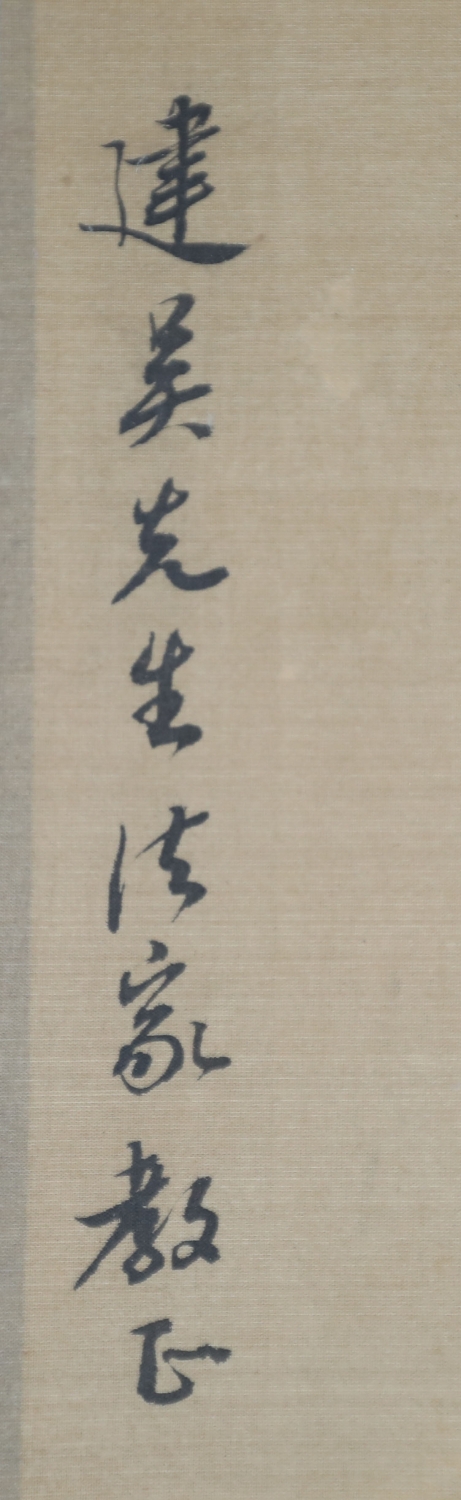 建吴先生法家教正